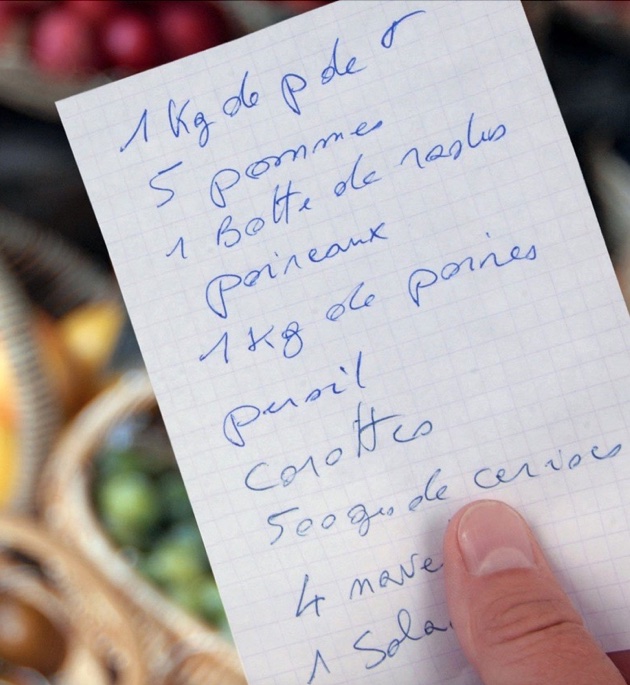 1 Kg de p de r
5 pommes
1 Botte de radis
poireaux
1 Kg de poires
persil
Carottes
500 gr de cerises
4 nave
1 Sala